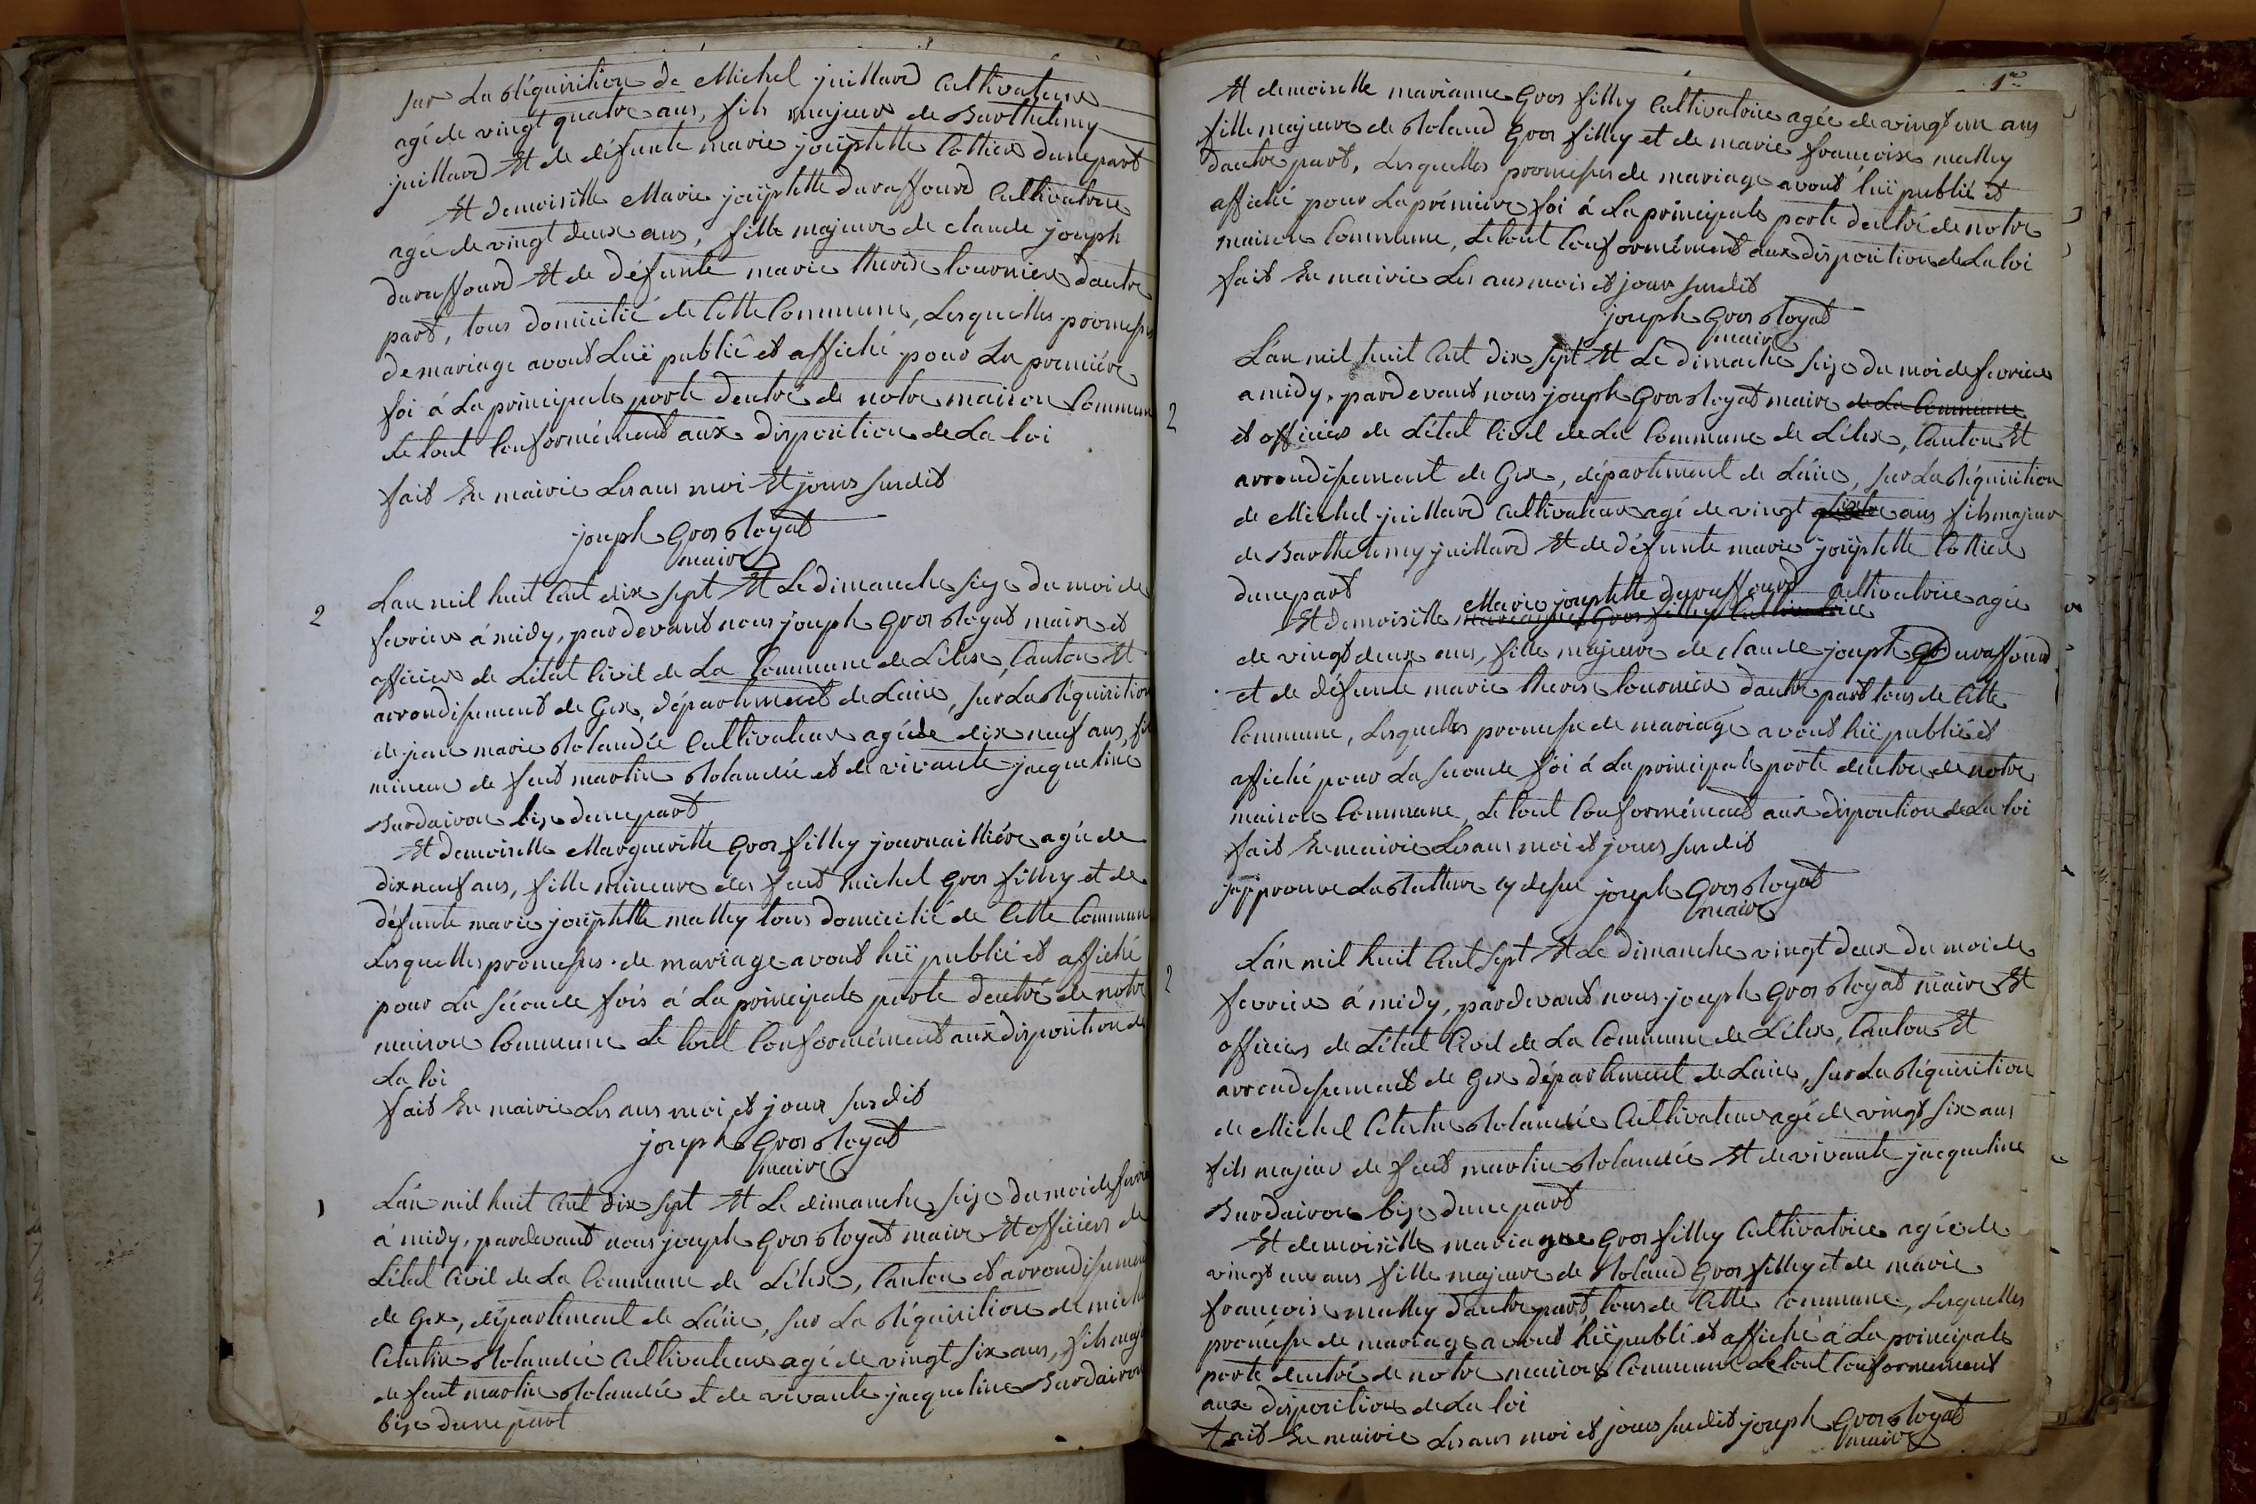 sur La Réquisition de Michel juillard Cultivateur
agé de vingt quatre ans, fils majeur de Barthelemy
juillard Et de défunte marie josephtte Cottier dunepart
Et demoiselle Marie josephtte duraffourd Cultivatrice
agée de vingt deux ans, fille majeure de claude joseph
duraffourd Et de défunte marie therese fournier dautre
part, tous domicilié de Cette Commune, Lesquelles promesses
de mariage avont Luë publié et affiché pour La premiére
foi á La principale porte dentré de notre maison Commune
Le tout Conformément aux disposition de La loi
fait En mairie Les ans moi Et jours susdit
joseph Gros Royat
maire
2
Lan mil huit Cent dix sept Et Le dimanche seize du moi de
fevrier á midy, pardevant nous joseph Gros Royat maire et
officier de Létat Civil de La Commune de Lélex, Canton Et
arrondissement de Gex, département de Lain, sur La Réquisition
de jean marie Rolandéz Cultivateur agé de dix neuf ans, fils
mineur de feut martin Rolandéz et de vivante jacqueline
Burdairon bize dunepart
Et demoiselle Margueritte Gros filley journailliére agée de
dixneuf ans, fille mineure de feut michel Gros filley et de
défunte marie josephtte mathey tous domicilié de Cette Commune
Lesquelles promesses de mariage avont luë publié et affiché
pour La séconde fois á La principale porte dentré de notre
maison Commune Le tout Conformément aux disposition de
La loi
fait En mairie Les ans moi et jours susdit
joseph Gros Royat
maire
1
Lán mil huit Cent dix sept Et Le dimanche seize du moi de fevrier
á midy, pardevant nous joseph Gros Royat maire Et officiers de
Létat Civil de La Commune de Lélex, Canton et arrondissement
de Gex, département de Láin, sur La Réquisition de michel
Célestin Rolandéz Cultivateur agé de vingt six ans, fils majeur
de feut martin Rolandéz et de vivante jacqueline Burdairon
bize dunepart
1re
Et demoiselle marianne Gros filley Cultivatrice agée de vingt un ans
fille majeure de Roland Gros filley et de marie francoise mathey
dautre part, Lesquelles promesses de mariage avont luë publié et
affiché pour La prémiere foi á La principale porte dentré de notre
maison Commune, Le tout Conformément aux disposition de La loi
fait En mairie Les ans mois et jour susdit
joseph Gros Royat
maire
2
Lán mil huit Cent dix sept Et Le dimanche seize du moi de fevrier
a midy, pardevant nous joseph Gros Royat maire de La Commune
et officier de Létat Civil de La Commune de Lélex, Canton Et
arrondissement de Gex, département de Láin, sur La Réquisition
de Michel juillard Cultivateur agé de vingt ans fils majeur
de Barthelemy juillard Et de défunte marie josephtte Cottier
dunepart
Et demoiselle Marie josephtte duraffourd Cultivatrice agée
marianne Gros filley Cultivatrice
de vingt deux ans, fille majeure de claude joseph duraffourd
et de défunte marie therese fournier dautre part tous de Cette
Commune, Lesquelles promesse de mariage avont luë publié et
affiché pour La séconde foi á La principale porte dentrée de notre
maison Commune, Le tout Conformément aux disposition de La loi
fait En mairie Les ans moi et jours susdit
japprouve La Rature cy dessus joseph Gros Royat
maire
2
Lán mil huit Cent sept Et Le dimanche vingt deux du moi de
fevrier á midy, pardevant nous joseph Gros Royat maire Et
officier de Létat Civil de La Commune de Lélex, Canton Et
arrondissement de Gex département de Lain, sur La Réquisition
de Michel Célestin Rolandéz Cultivateur agé de vingt six ans
fils majeur de feut martin Rolandéz Et de vivante jacqueline
Burdairon bize dunepart
Et demoiselle marianne Gros filley Cultivatrice agée de
vingt un ans fille majeure de Roland Gros filley et de marie
francoise mathey dautre part, tous de Cette Commune, Lesquelles
promesse de mariage avont luë publié et affiché á La principale
porte dentré de notre maison Commune Le tout Conformement
aux disposition de La loi
fait En mairie Les ans moi et jours susdit joseph Gros Royat
maire